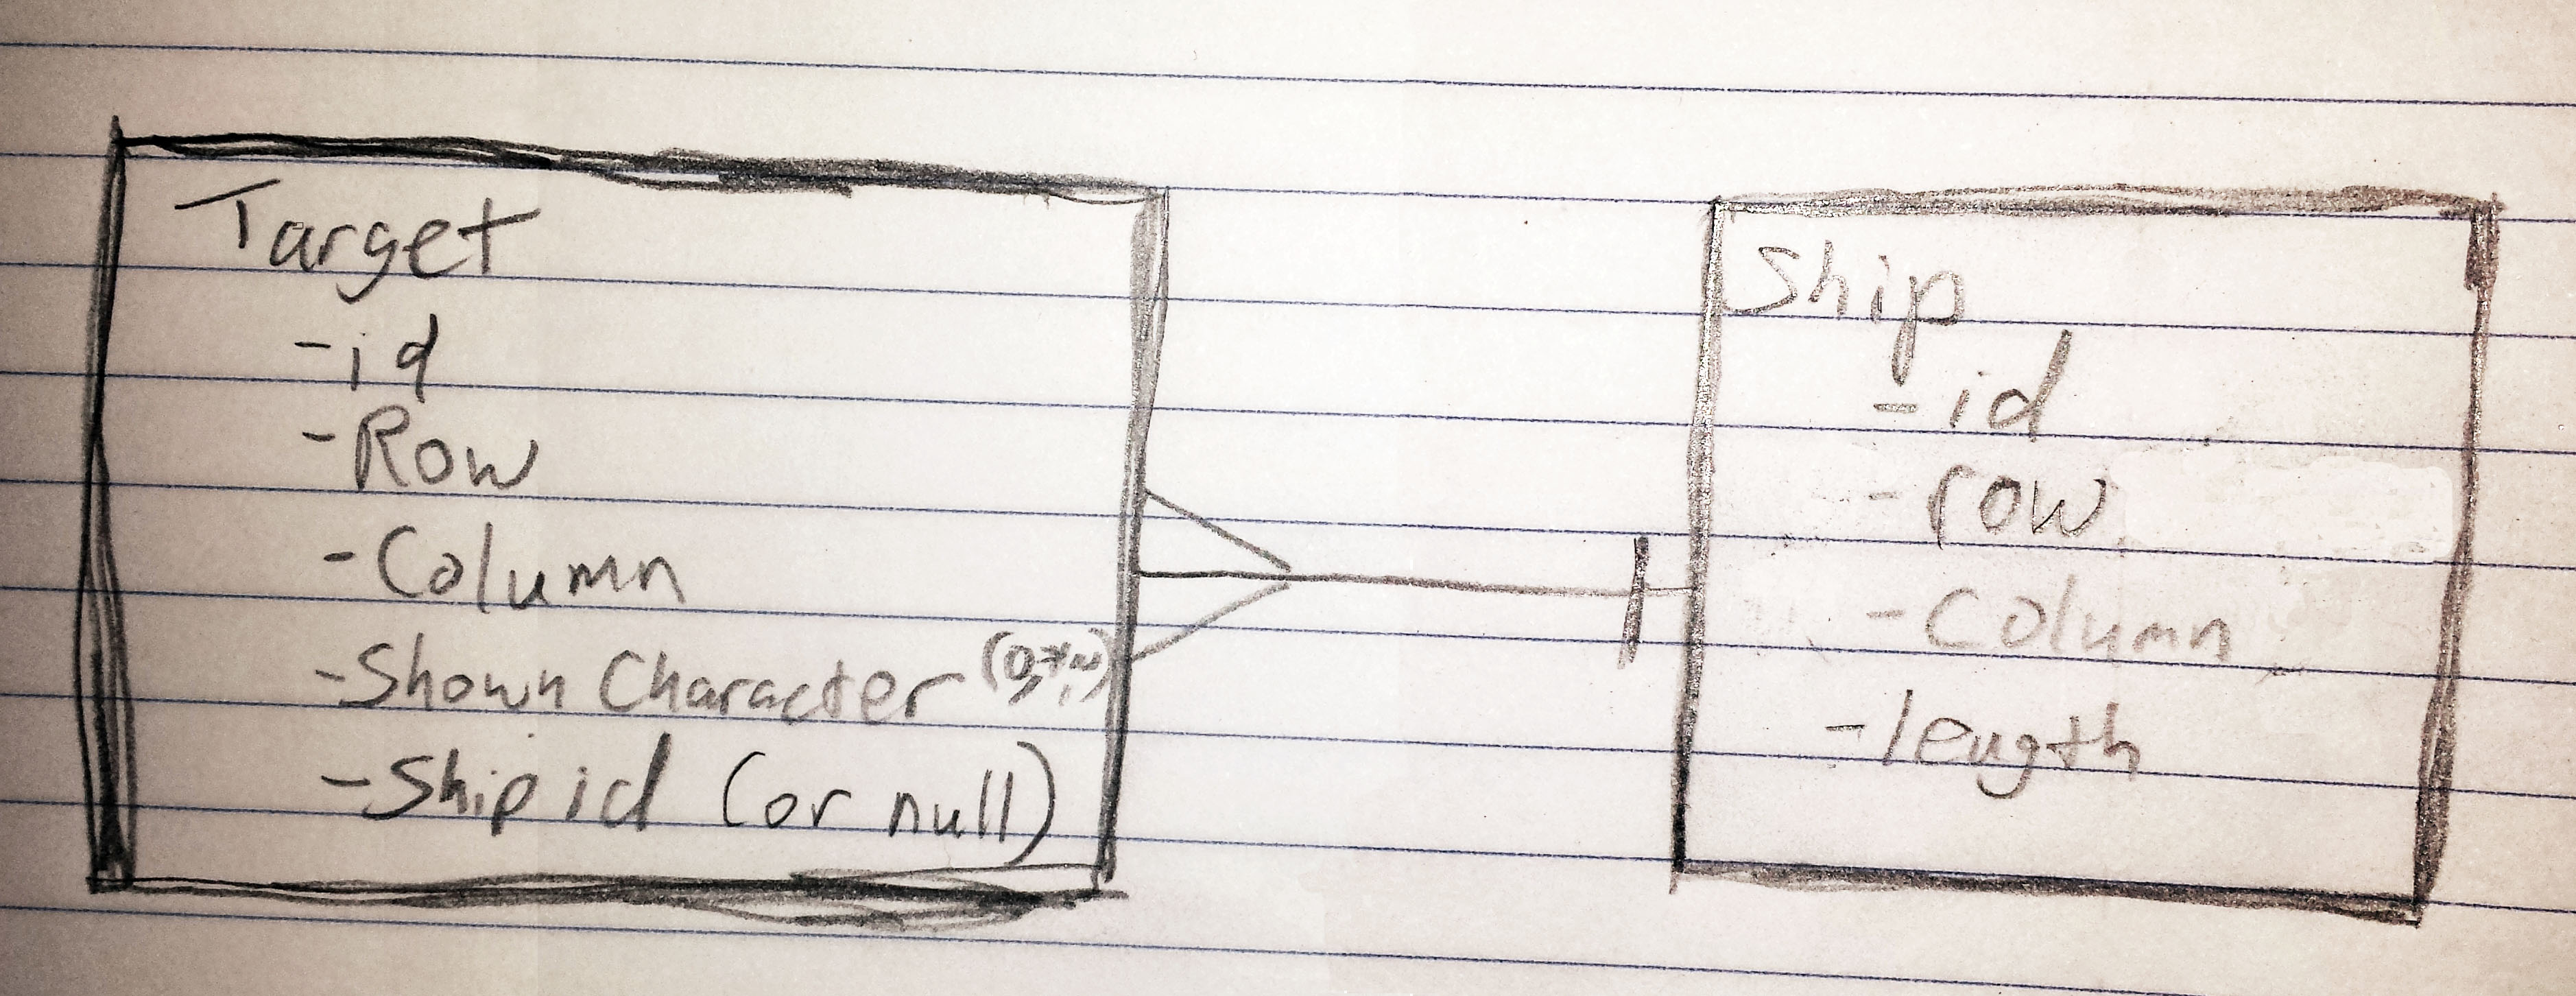 Target
-id
-Row
-Column
-Shown Character
-Ship id (or null)
Ship
-id
-row
-Column
-length